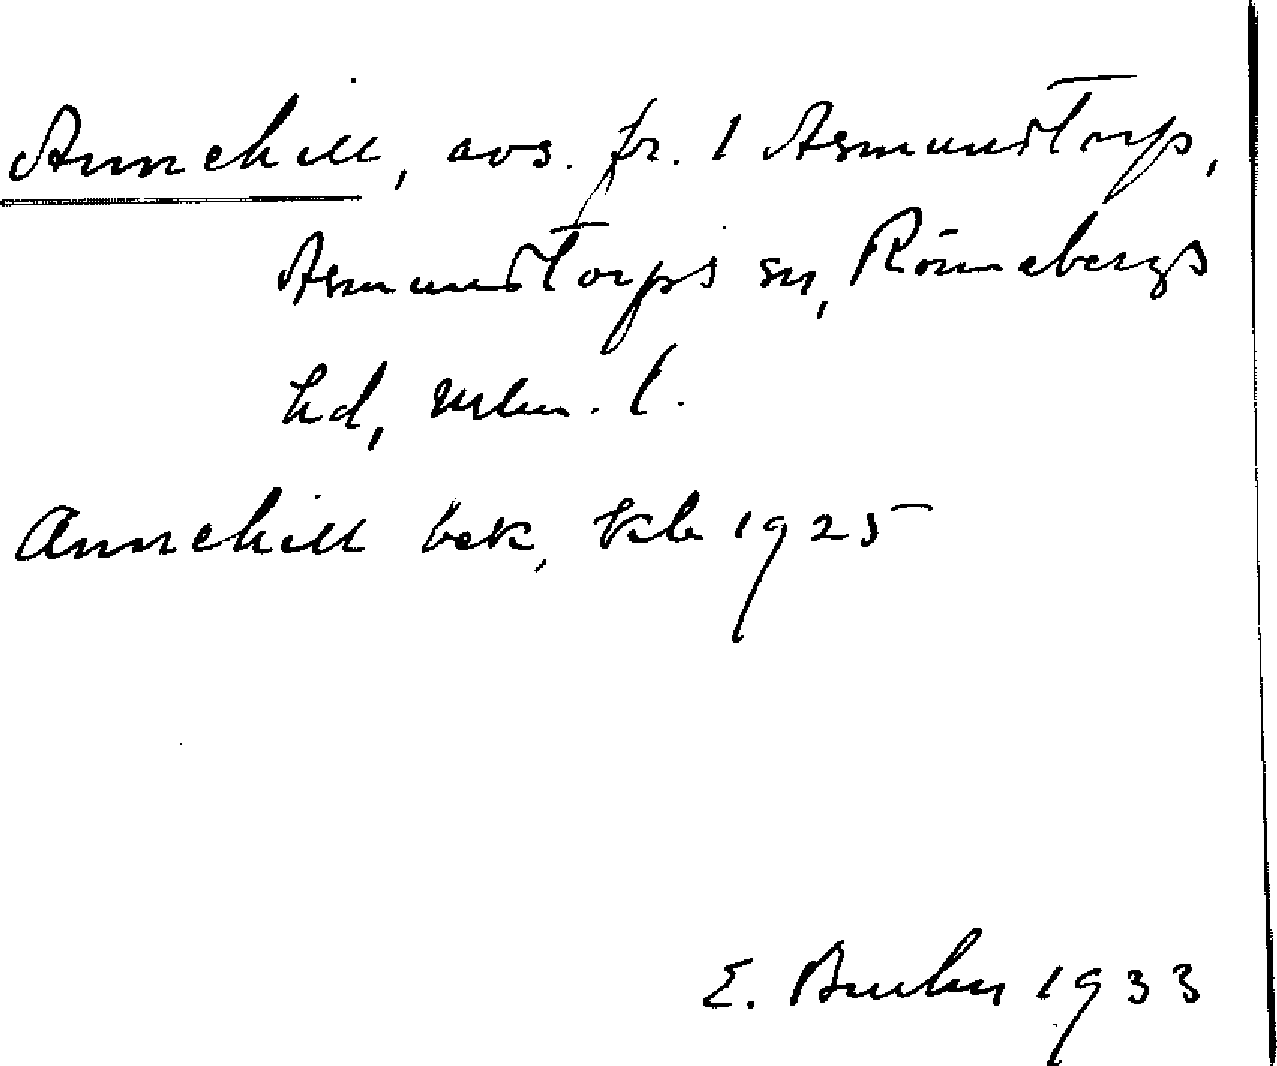 Annehill, avs. fr. 1 Asmundtorp,
Asmundtorps sn, Rönnebergs
hd, Mlm. l.
Annehill bek, kb 1925
E. 1933